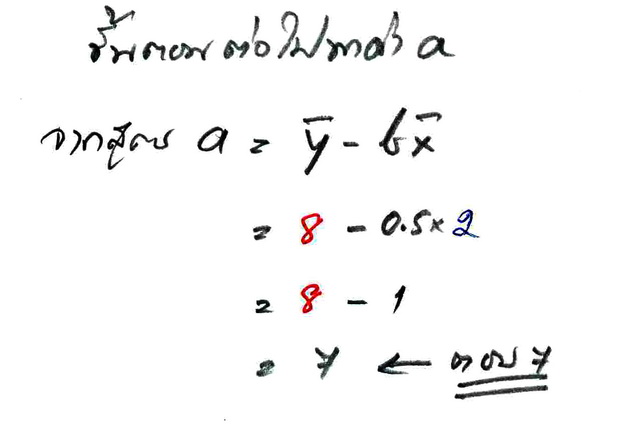 ขั้นตอนต่อไปหาค่า a
จากสูตร a = y̅ - bx̅
= 8 - 0.5 × 2
= 8 - 1
= 7 ← ตอบ 7